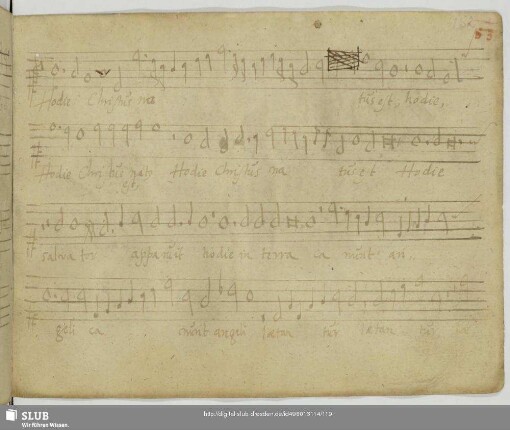 53
Hodie Christus na tus est, hodie,
Hodie Christus nato Hodie Christus na tus est Hodie
salva tor apparuit hodie in terra ca nunt an
geli ca nunt angeli laetan tur laetan tur
SLUB
Wir führen Wissen.
http://digital.slub-dresden.de/